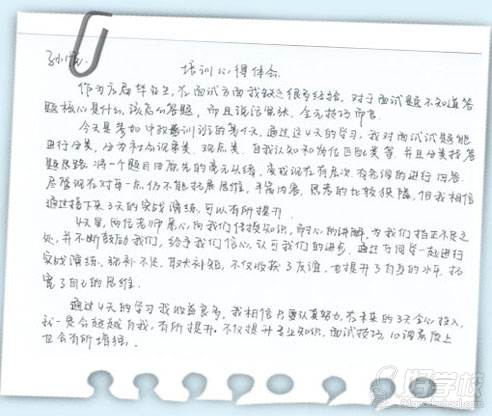 培训心得体会
作为应届毕业生,在面试方面我缺乏很多经验,对于面试题不知道答
题核心是什么,该怎么答题,而且说话紧张,全无技巧而言。
今天是参加中政培训的第4天,通过这4天的学习,我对面试试题能
进行分类,分为社会现象类、观点类、自我认知和岗位匹配类等,并且分类找答
题思路,将一个题目由原先的毫无头绪,变成现在有层次、有条理的进行回答。
尽管现在对每一点仍不能拓展思维,丰富内容,思考的比较狭隘,但我相信
通过接下来3天的实战演练,可以有所提升。
4天里,两位老师悉心向我们传授知识,耐心的讲解,为我们指正不足之
处,并不断鼓励我们,给予我们信心,认可我们的进步。通过与同学一起进行
实战演练,弥补不足,取长补短,不仅收获了友谊,也提升了自身的水平,拓
宽了自己的思维。
通过4天的学习我收益良多,我相信只要认真努力,在未来的3天全心投入,
我一定会超越自我,有所提升,不仅提升专业知识,面试技巧,心理素质上
也会有所增强。
好学校